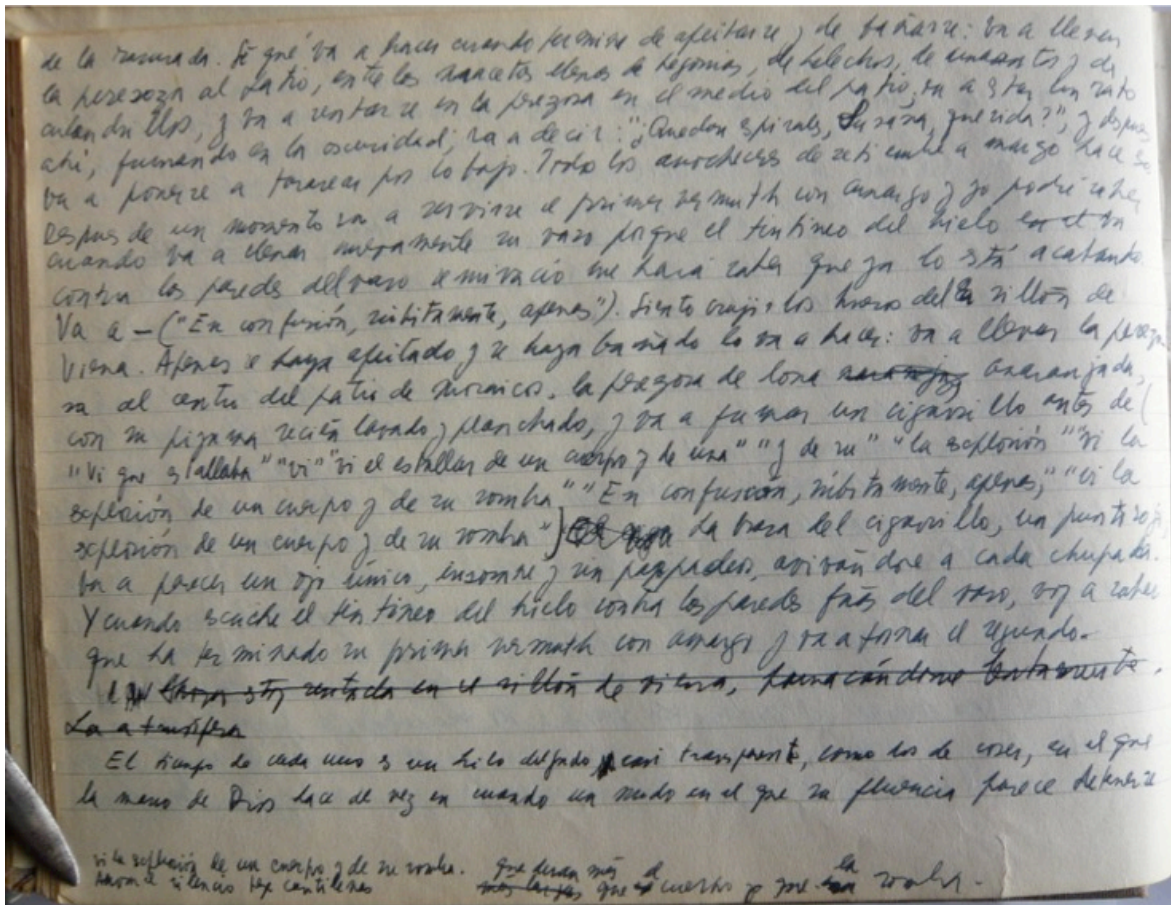 de la rasurada. Sé qué va a hacer cuando termine de afeitarse y de bañarse: va a llevar
la perezosa al patio, entre las macetas llenas de begonias, de helechos, de amarantos y de
culandrillos, y va a sentarse en la perezosa en el medio del patio, va a estar un rato
ahí, fumando en la oscuridad; va a decir: "¿Quedan espirales, Susana, querida?", y después
va a ponerse a tararear por lo bajo. Todos los anocheceres de setiembre a marzo hace eso.
Después de un momento va a servirse el primer vermuth con amargo y yo podré saber
cuando va a llenar nuevamente su vaso porque el tintineo del hielo en el
contra las paredes del vaso semivacío me hará saber que ya lo está acabando.
Va a – ("En confusión, súbitamente, apenas"). Siento crujir los brazos del sillón de
Viena. Apenas se haya afeitado y se haya bañado lo va a hacer: va a llevar la perezosa
al centro del patio de mosaicos, la perezosa de lona naranja anaranjada,
con su pijama recién lavado y planchado, y va a fumar un cigarrillo antes de (
"Vi que estallaba" "vi" "vi el estallar de un cuerpo y de una" "y de su" "la explosión" "vi la
explosión de un cuerpo y de su sombra" "En confusión, súbitamente, apenas," "vi la
explosión de un cuerpo y de su sombra") La brasa del cigarrillo, un punto rojo,
va a parecer un ojo único, insomne y sin parpadeos, avivándose a cada chupada.
Y cuando escuche el tintineo del hielo contra las paredes frías del vaso, voy a saber
que ha terminado su primer vermuth con amargo y va a tomar el segundo.
Ahora estoy sentada en el sillón de viena, hamacándome lentamente.
La atmósfera
El tiempo de cada uno es un hilo delgado, casi transparente, como los de coser, en el que
la mano de Dios hace de vez en cuando un nudo en el que su fluencia parece detenerse
vi la explosión de un cuerpo y de su sombra. que duran más el
Ahora el silencio teje cantilenas más largas que cuerpo y que la sombra.